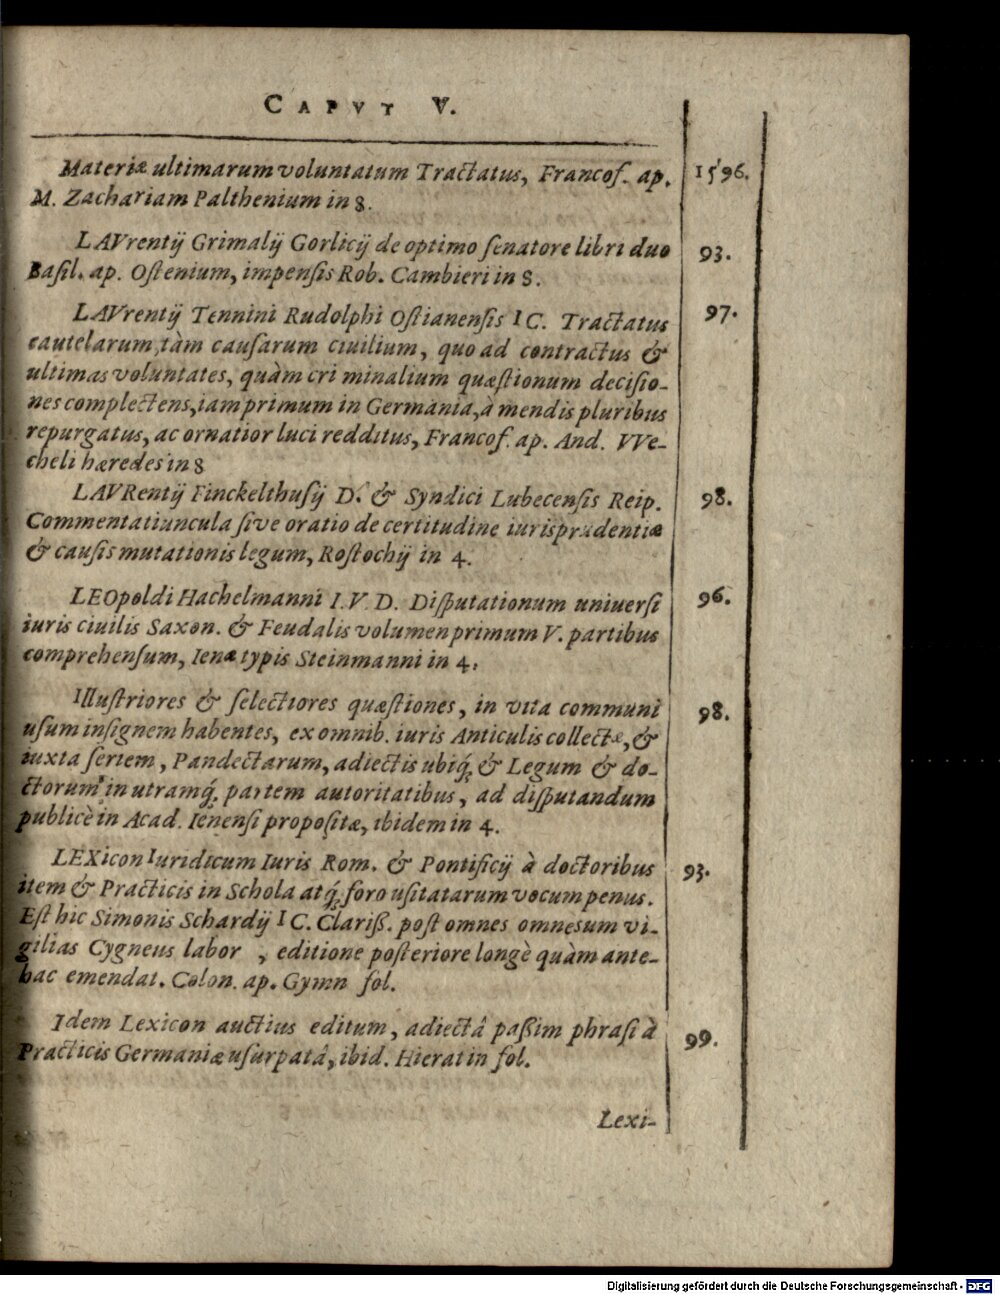 CAPVT V.
Materiæ ultimarum voluntatum Tractatus, Francof. ap. 1596.
M. Zachariam Palthenium in 8.
LAVrentij Grimalij Gorlicij de optimo senatore libri duo 93.
Basil. ap. Ostenium, impensis Rob. Cambieri in 8.
LAVrentij Tennini Rudolphi Ostianensis IC. Tractatus 97.
cautelarum, tàm causarum ciuilium, quo ad contractus &
ultimas voluntates, quàm cri minalium quæstionum decisio-
nes complectens, iam primum in Germania, à mendis pluribus
repurgatus, ac ornatior luci redditus, Francof. ap. And. VVe-
cheli hæredes in 8
LAVRentij Finckelthusij D. & Syndici Lubecensis Reip. 98.
Commentatiuncula sive oratio de certitudine iurisprudentiæ
& causis mutationis legum, Rostochij in 4.
LEOpoldi Hachelmanni I. V. D. Disputationum uniuersi 96.
iuris ciuilis Saxon. & Feudalis volumen primum V. partibus
comprehensum, Ienæ typis Steinmanni in 4.
Illustriores & selectiores quæstiones, in vita communi 98.
usum insignem habentes, ex omnib. iuris Anticulis collectæ, &
iuxta seriem, Pandectarum, adiectis ubiq́; & Legum & do-
ctorum in utramq́; partem autoritatibus, ad disputandum
publicè in Acad. Ienensi propositæ, ibidem in 4.
LEXicon Iuridicum Iuris Rom. & Pontificij à doctoribus 93.
item & Practicis in Schola atq́; foro usitatarum vocum penus.
Est hic Simonis Schardij IC. Clariß. post omnes omnesum vi-
gilias Cygneus labor , editione posteriore longè quàm ante-
hac emendat. Colon. ap. Gymn fol.
Idem Lexicon auctius editum, adiectâ paßim phrasi à 99.
Practicis Germaniæ usurpatâ, ibid. Hierat in fol.
Lexi-
Digitalisierung gefördert durch die Deutsche Forschungsgemeinschaft - DFG